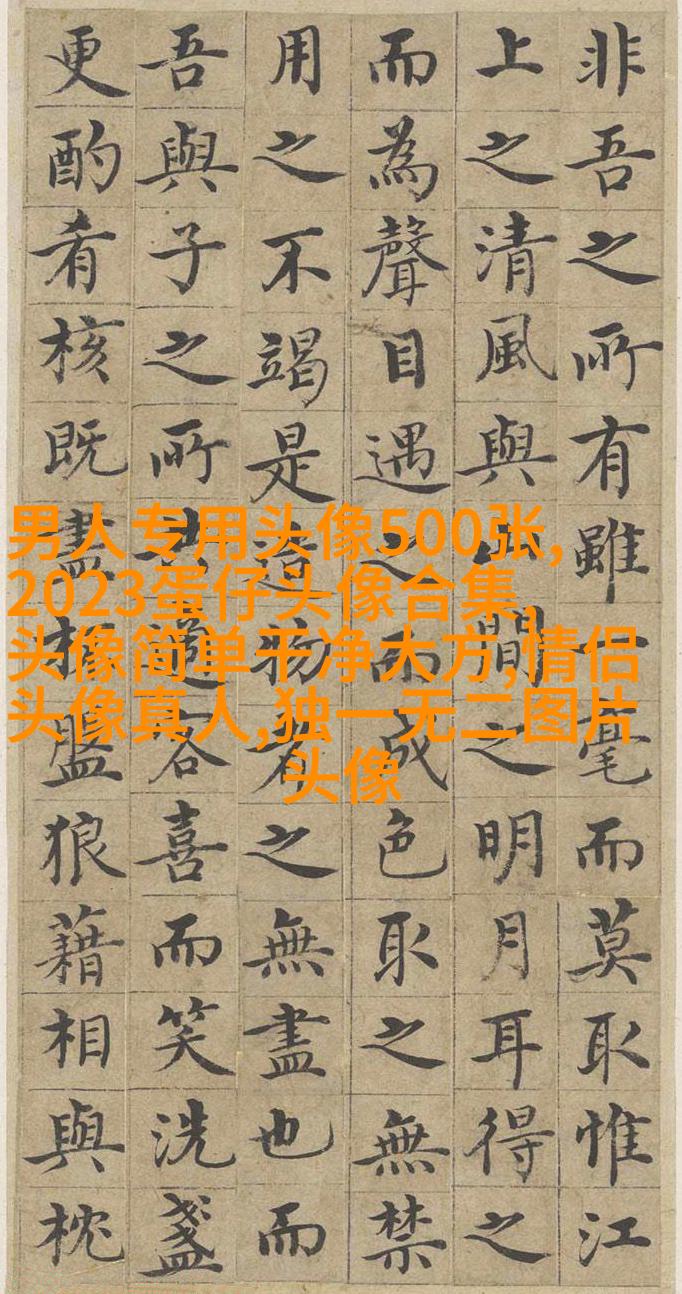 非吾之所有雖一毫而莫取惟江
上之清風與山間之明月耳得之
而為聲目遇之而成色取之無禁
用之不竭是造物者之無盡也而
吾與子之所共適客喜而笑洗盞
更酌肴核既盡杯盤狼藉相與枕
男人专用头像500张,
2023蛋仔头像合集,
头像简单干净大方,情侣
头像真人,独一无二图片
头像